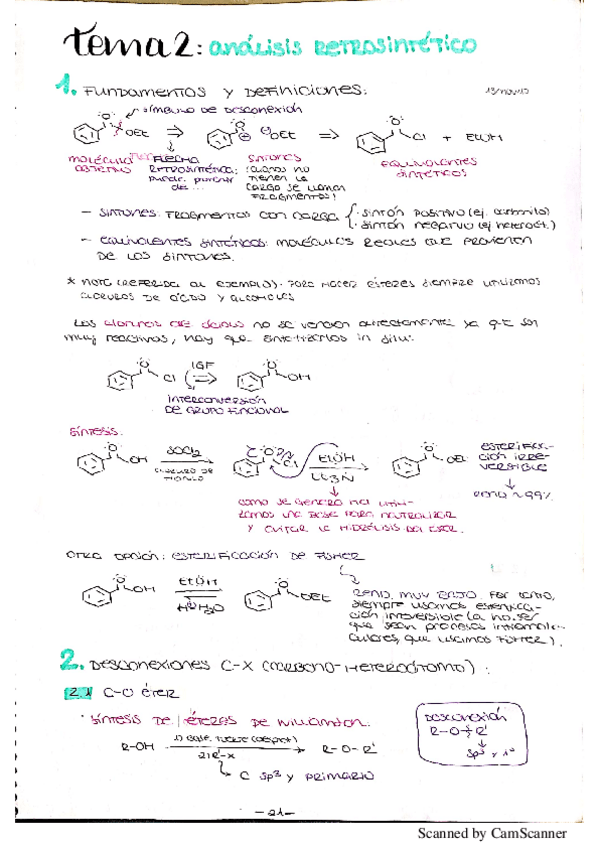 tema 2: análisis retrosintético
1. Fundamentos y Definiciones:
símbolo de desconexión
O
OEt ⇒ O ⊕ ⊖OEt ⇒ O Cl + EtOH
molécula objetivo
FLECHA RETROSINTÉTICA:
puede partir de ...
SINTONES
(cuando no tienen la carga se llaman fragmentos)
EQUIVALENTES SINTÉTICOS
- SINTONES: FRAGMENTOS CON CARGA { · SINTÓN POSITIVO (ej.
· SINTÓN NEGATIVO (ej heteroát.)
- EQUIVALENTES SINTÉTICOS: MOLÉCULAS REALES QUE PROVIENEN
DE LOS SINTONES.
* NOTA (REFERIDA AL EJEMPLO): PARA HACER ÉSTERES SIEMPRE UTILIZAMOS
CLORUROS DE ÁCIDO Y ALCOHOLES
Los cloruros de ácido no se venden directamente ya que son
muy reactivos, hay que sintetizarlos in situ:
O Cl IGF ⇒ O OH
INTERCONVERSIÓN
DE GRUPO FUNCIONAL
SÍNTESIS:
O OH SOCl2
CLORURO DE TIONILO
O Cl EtOH
Et3N
O OEt
ESTERIFICACIÓN IRREVERSIBLE
rdmo ~ 99%
como se genera HCl utilizamos
una base para neutralizar
y evitar la hidrólisis del éster.
OTRA OPCIÓN: ESTERIFICACIÓN DE FISHER
O OH EtOH
H⊕ H2O
O OEt
REND. MUY BAJO. Por tanto,
siempre usamos esterificación
irreversible (a no ser
que sean procesos intramoleculares,
que usamos Fisher).
2. DESCONEXIONES C-X (CARBONO-HETEROÁTOMO):
2.1 C-O ÉTER
· SÍNTESIS DE ÉTERES DE WILLIAMSON:
R-OH 1) BASE FUERTE
2) R'-X
R-O-R'
C sp3 y PRIMARIO
Desconexión
R-O-R'
sp3 y 1º
-21-
Scanned by CamScanner